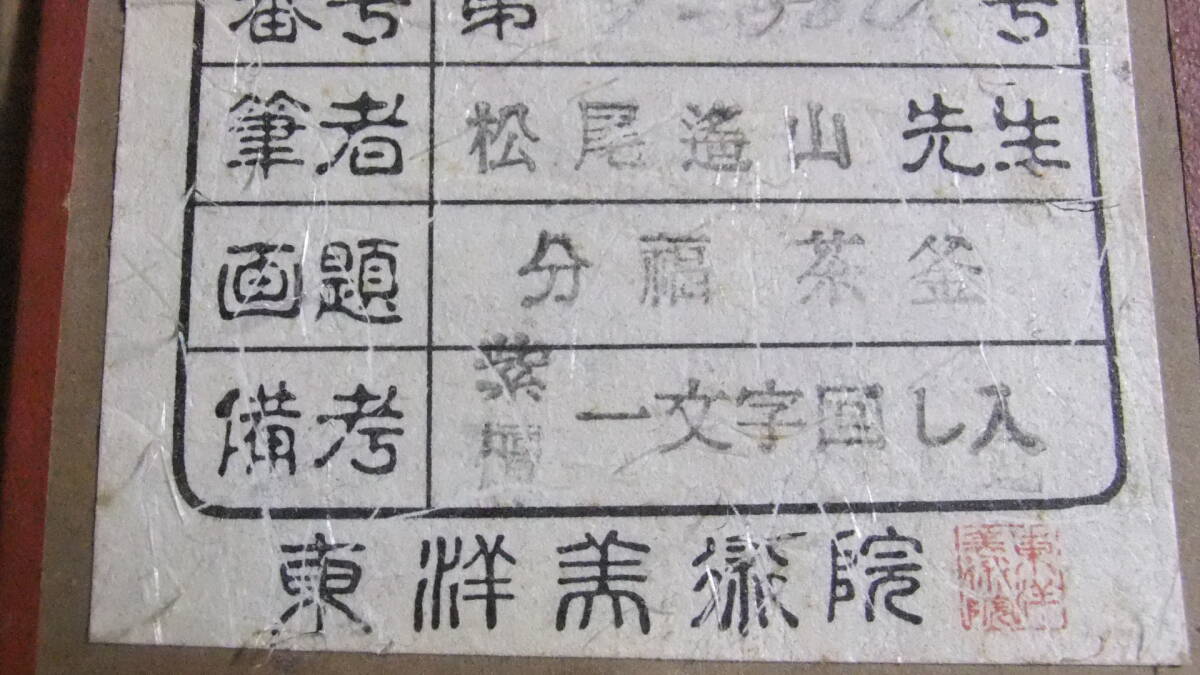 番号 第 号
筆者 松尾遙山先生
画題 分福茶釜
備考 紫檀 一文字回し入
東洋美術院
東洋美術院